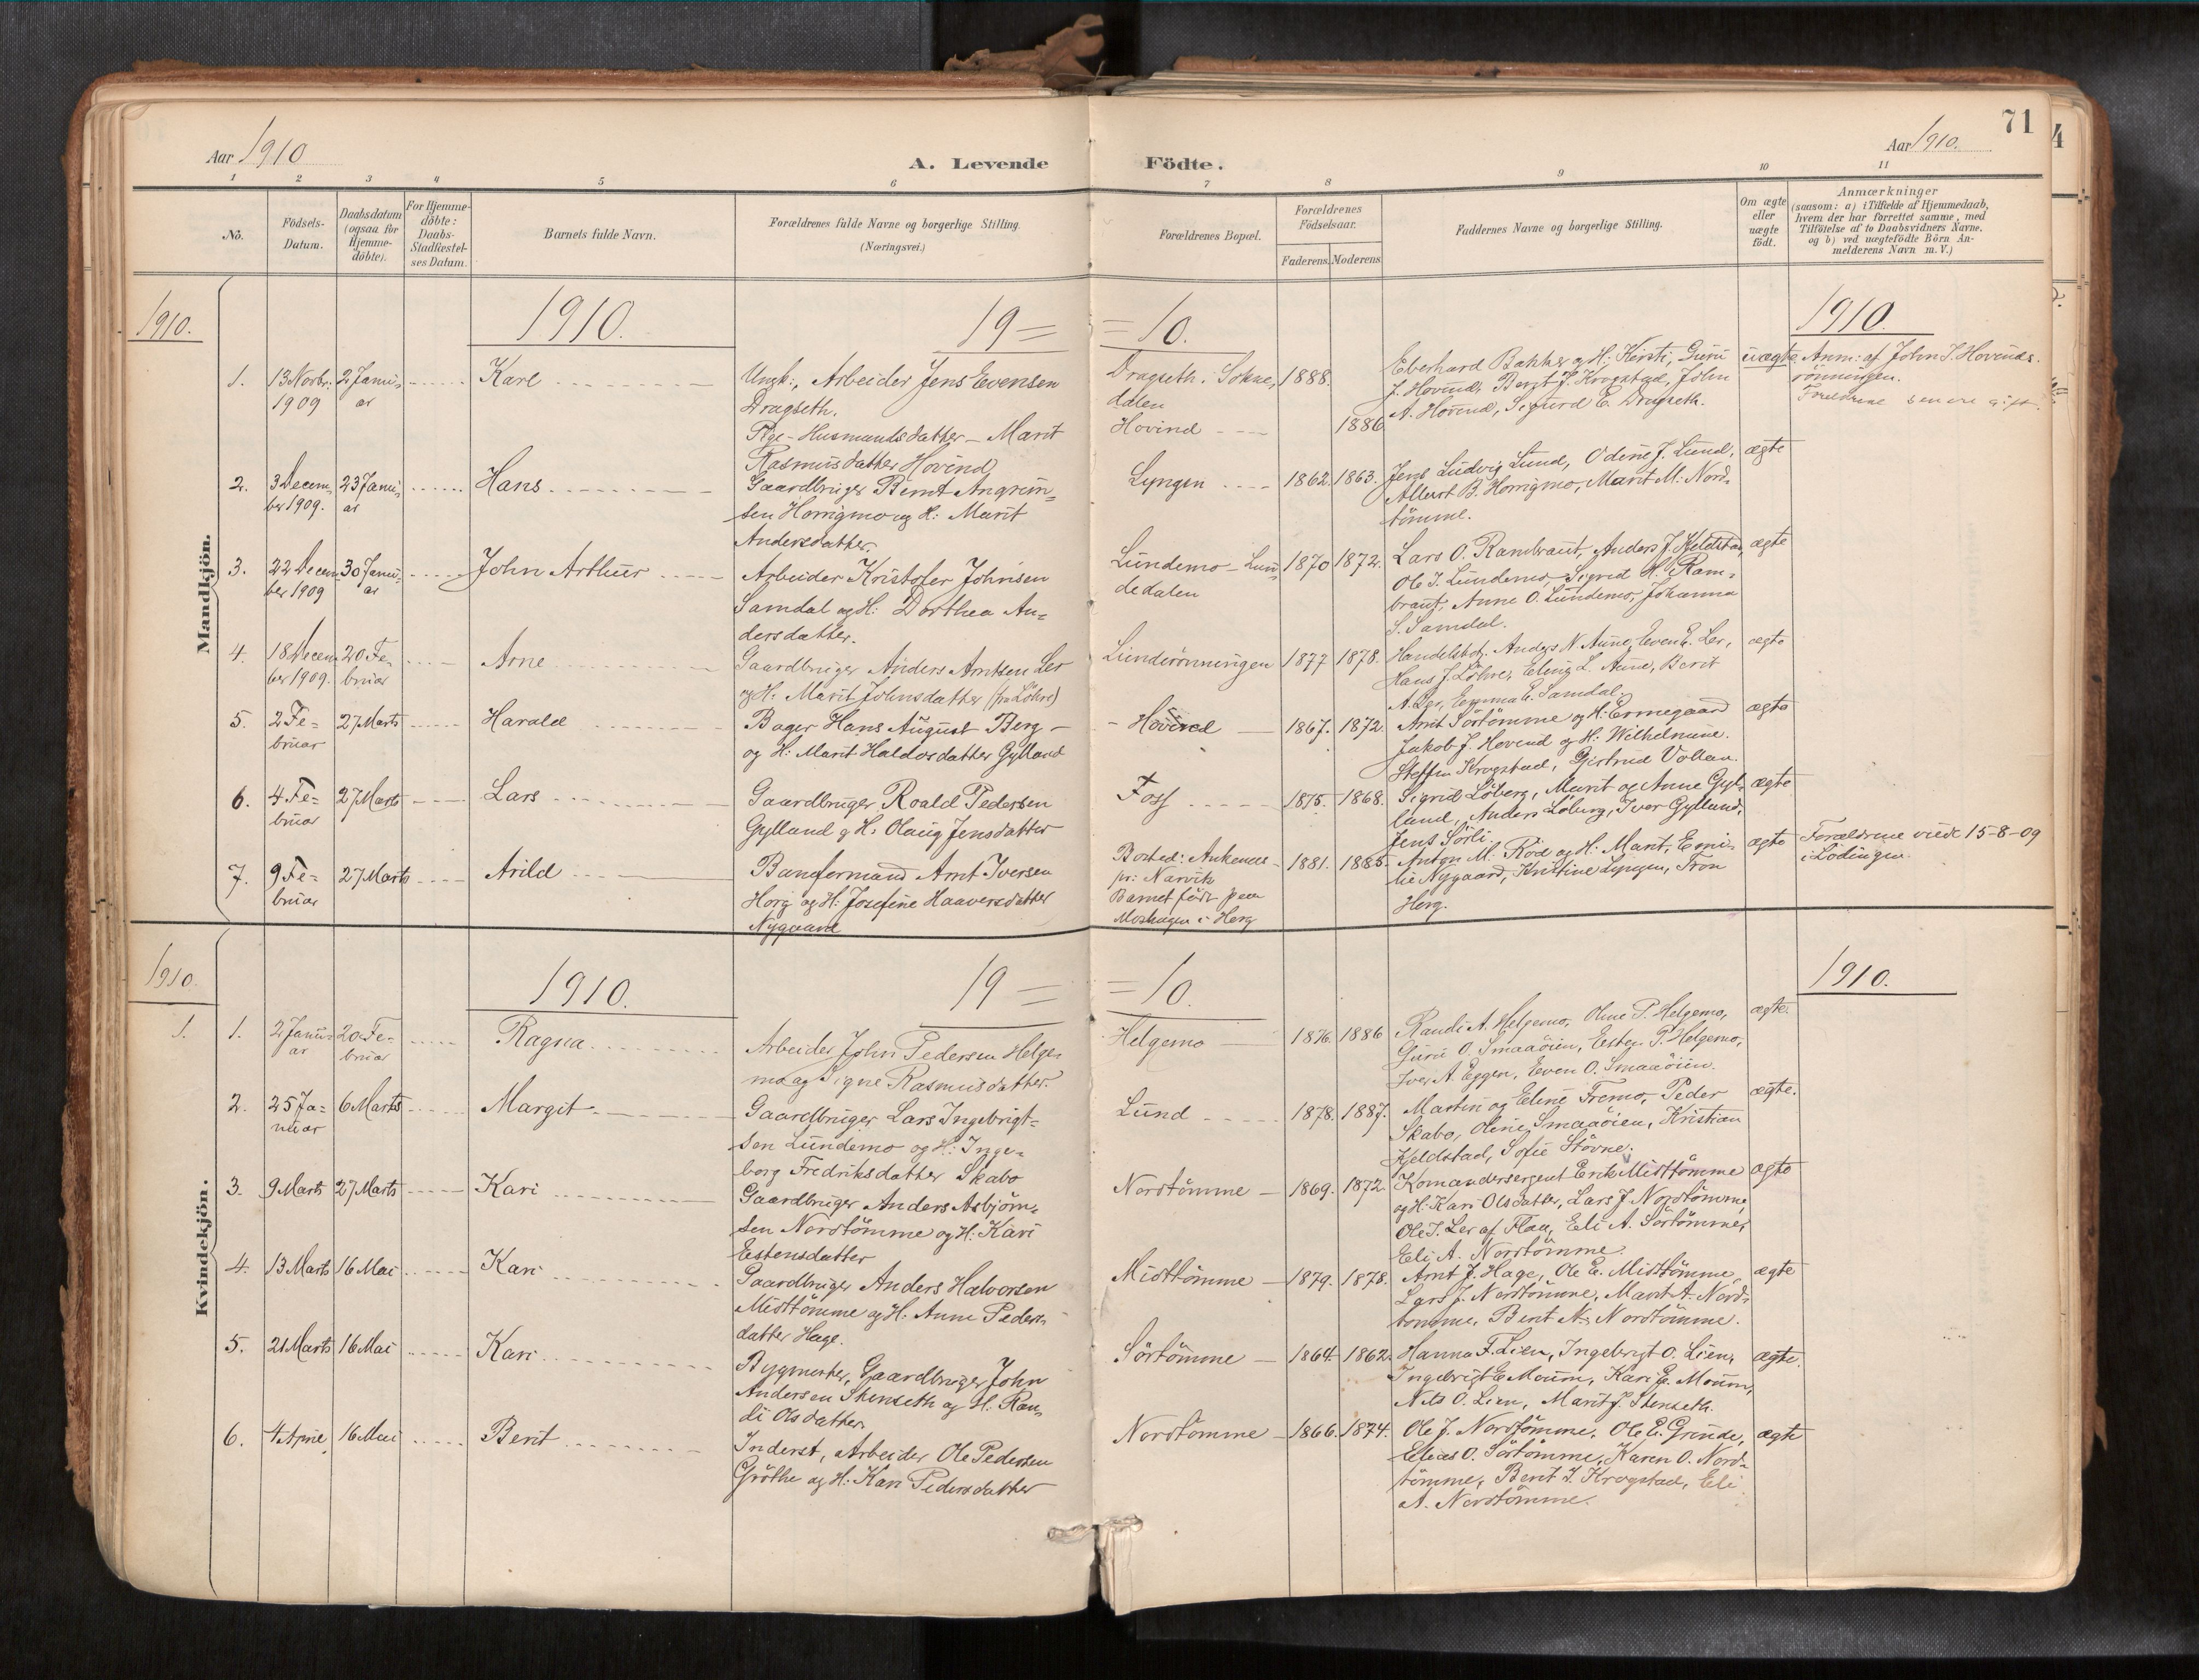 71
Aar 1910
A. Levende Födte.
Aar 1910.
1 2 3 4 5 6 7 8 9 10 11
No.
Födsels-
Datum.
Daabsdatum
(ogsaa for
Hjemme-
döbte).
For Hjemme-
döbte:
Daabs-
Stadfæstel-
ses Datum.
Barnets fulde Navn.
Forældrenes fulde Navne og borgerlige Stilling.
(Næringsvei.)
Forældrenes Bopæl.
Forældrenes
Födselsaar.
Faderens. Moderens.
Faddernes Navne og borgerlige Stilling.
Om ægte
eller
uægte
födt.
Anmærkninger
(saasom: a) i Tilfælde af Hjemmedaab,
hvem der har forrettet samme, med
Tilföielse af to Daabsvidners Navne.
og b) ved uægtefödte Börn An-
melderens Navn m. V.)
Mandkjön.
1910.
1910.
19 =
= 10.
1910.
1.
13 Novbr.
1909
2 Janu-
ar
Karl
Ungk:, Arbeider Jens Evensen
Dragseth.
Pige - Husmandsdatter - Marit
Rasmusdatter Hovind
Dragseth i Sokne-
dalen
Hovind
1888.
1886
Eberhard Bakker og H: Kirsti, Guru
J. Hovind, Berit J. Krogstad, John
A. Hovind, Sigurd E. Dragseth.
uægte
Anm: af John S. Hovinds-
rönningen.
Foreldrene senere gift.
2.
3 Decem-
ber 1909.
23 Janu-
ar
Hans
Gaardbruger Bernt Angrim-
sen Horrigmo og H: Marit
Andersdatter.
Lyngen
1862. 1863.
Jens Ludvig Lund, Odine J. Lund,
Albert B. Horrigmo, Marit M. Nord-
tömme.
ægte
3.
22 Decem
ber 1909
30 Janu-
ar
John Arthur
Arbeider Kristofer Johnsen
Samdal og H: Dorthea An-
dersdatter.
Lundemo - Lun-
dedalen
1870 1872.
Lars O. Rambraut, Anders J. Kjeldstad,
Ole I. Lundemo, Sigrid H. Ram-
braut, Anne O. Lundemo, Johanna
S. Samdal.
ægte
4.
18 Decem
ber 1909.
20 Fe-
bruar
Arne
Gaardbruger Anders Arntsen Ler
og H: Marit Johnsdatter (fra Löhre)
Lunderönningen
1877 1878.
Handelsbetj. Anders N. Aune, Even E. Ler,
Hans J. Löhre, Eling L. Aune, Berit
A. Ler, Emma E. Samdal.
ægte
5.
2 Fe-
bruar
27 Marts
Harald
Bager Hans August Berg -
og H: Marit Haldosdatter Gylland
- Hovind
1867. 1872.
Arnt Sörtömme og H: Ermegaard
Jakob J. Hovind og H: Wilhelmine.
Steffen Krogstad, Gjertrud Vollan.
ægte
6.
4 Fe-
bruar
27 Marts
Lars
Gaardbruger Roald Pedersen
Gylland og H: Olaug Jensdatter
Foss
1875. 1868.
Sigrid Löberg, Marit og Anne Gyl-
land, Anders Löberg, Iver Gylland,
Jens Sörli.
ægte
7.
9 Fe-
bruar
27 Marts
Arild
Baneformand Arnt Iversen
Horg og H: Josefine Haaversdatter
Nygaard
Bosted: Ankenes
pr: Narvik
Barnet födt paa
Moshagen i Horg
1881. 1885.
Anton M. Röd og H: Marit, Emi-
lie Nygaard, Kristine Lyngen, Tron
Horg.
ægte
Forældrene viede 15-8-09
i Lödingen.
Kvindekjön.
1910.
1910.
19 =
= 10.
1910.
1.
1.
2 Janu-
ar
20 Fe-
bruar
Ragna
Arbeider John Pedersen Helge-
mo og Signe Rasmusdatter.
Helgemo
1876. 1886
Randi A. Helgemo, Oline P. Helgemo,
Guru O. Smaaöien, Esten P. Helgemo,
Iver A. Eggen, Even O. Smaaöien.
ægte.
2.
25 Ja-
nuar
6 Marts
Margit
Gaardbruger Lars Ingebrigt-
sen Lundemo og H: Inge-
borg Fredriksdatter Skabo
Lund
1878. 1887.
Martin og Eline Fremo, Peder
Skabo, Oline Smaaöien, Kristian
Kjeldstad, Sofie Stövne.
ægte.
3.
9 Marts
27 Marts
Kari
Gaardbruger Anders Asbjörn-
sen Nordtömme og H: Kari
Estensdatter
Nordtömme
1869. 1872.
Komandersergent Erik Midttömme
og H: Kari Olsdatter, Lars J. Nordtömme,
Ole I. Ler af Flaa, Eli A. Sörtömme,
Eli A. Nordtömme.
ægte
4.
13 Marts
16 Mai
Kari
Gaardbruger Anders Halvorsen
Midttömme og H: Anne Peders-
datter Hage.
Midttömme
1879. 1878.
Arnt J. Hage, Ole E. Midttömme,
Lars J. Nordtömme, Marit A. Nord-
tömme, Berit N. Nordtömme.
ægte
5.
21 Marts
16 Mai
Kari
Bygmester, Gaardbruger John
Andersen Stenseth og H. Ran-
di Olsdatter.
Sörtömme
1864. 1862.
Hanna F. Lien, Ingebrigt O. Lien,
Ingebrigt E. Moum, Kari E. Moum,
Nils O. Lien, Marit J. Stenseth.
ægte.
6.
4 April
16 Mai
Berit
Inderst, Arbeider Ole Pedersen
Gröthe og H: Kari Pedersdatter
Nordtömme
1866. 1874.
Ole J. Nordtömme, Ole E. Grinde,
Elias O. Sörtömme, Karen O. Nord-
tömme, Berit I. Krogstad, Eli
A. Nordtömme.
ægte